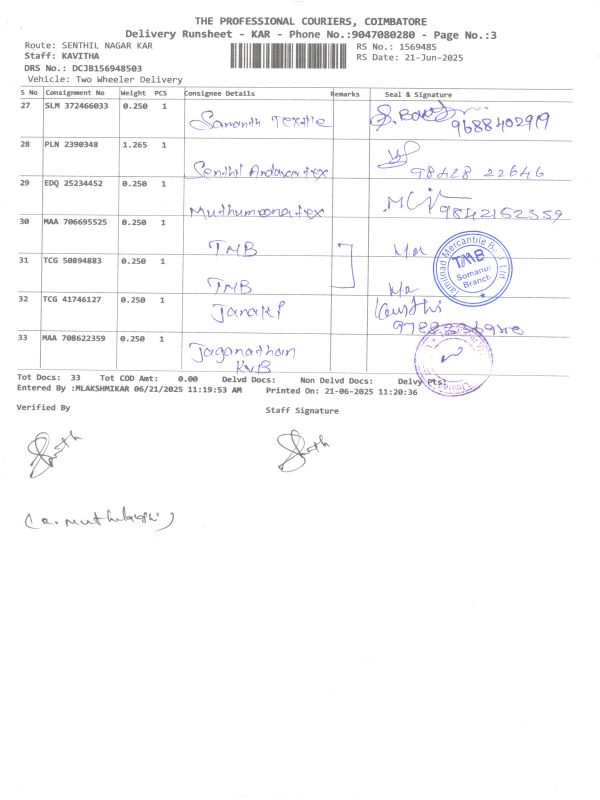 THE PROFESSIONAL COURIERS, COIMBATORE
Delivery Runsheet - KAR - Phone No.:9047080280 - Page No.:3
Route: SENTHIL NAGAR KAR RS No.: 1569485
Staff: KAVITHA RS Date: 21-Jun-2025
DRS No.: DCJB156948503
Vehicle: Two Wheeler Delivery
S No Consignment No Weight PCS Consignee Details Remarks Seal & Signature
27 SLM 372466033 0.250 1
Samanth Textile 9688402919
28 PLN 2390348 1.265 1
Senthil Andavar tex 98428 22646
29 EDQ 25234452 0.250 1
Muthumeena tex 9842152359
30 MAA 706695525 0.250 1
TMB
31 TCG 50894883 0.250 1
TMB
Tamilnad Mercantile Bank Ltd
TMB
Somanur
Branch
32 TCG 41746127 0.250 1
Janaki
33 MAA 708622359 0.250 1
Jaganathan
KVB
Tot Docs: 33 Tot COD Amt: 0.00 Delvd Docs: Non Delvd Docs: Delvy Pts:
Entered By :MLAKSHMIKAR 06/21/2025 11:19:53 AM Printed On: 21-06-2025 11:20:36
Verified By Staff Signature